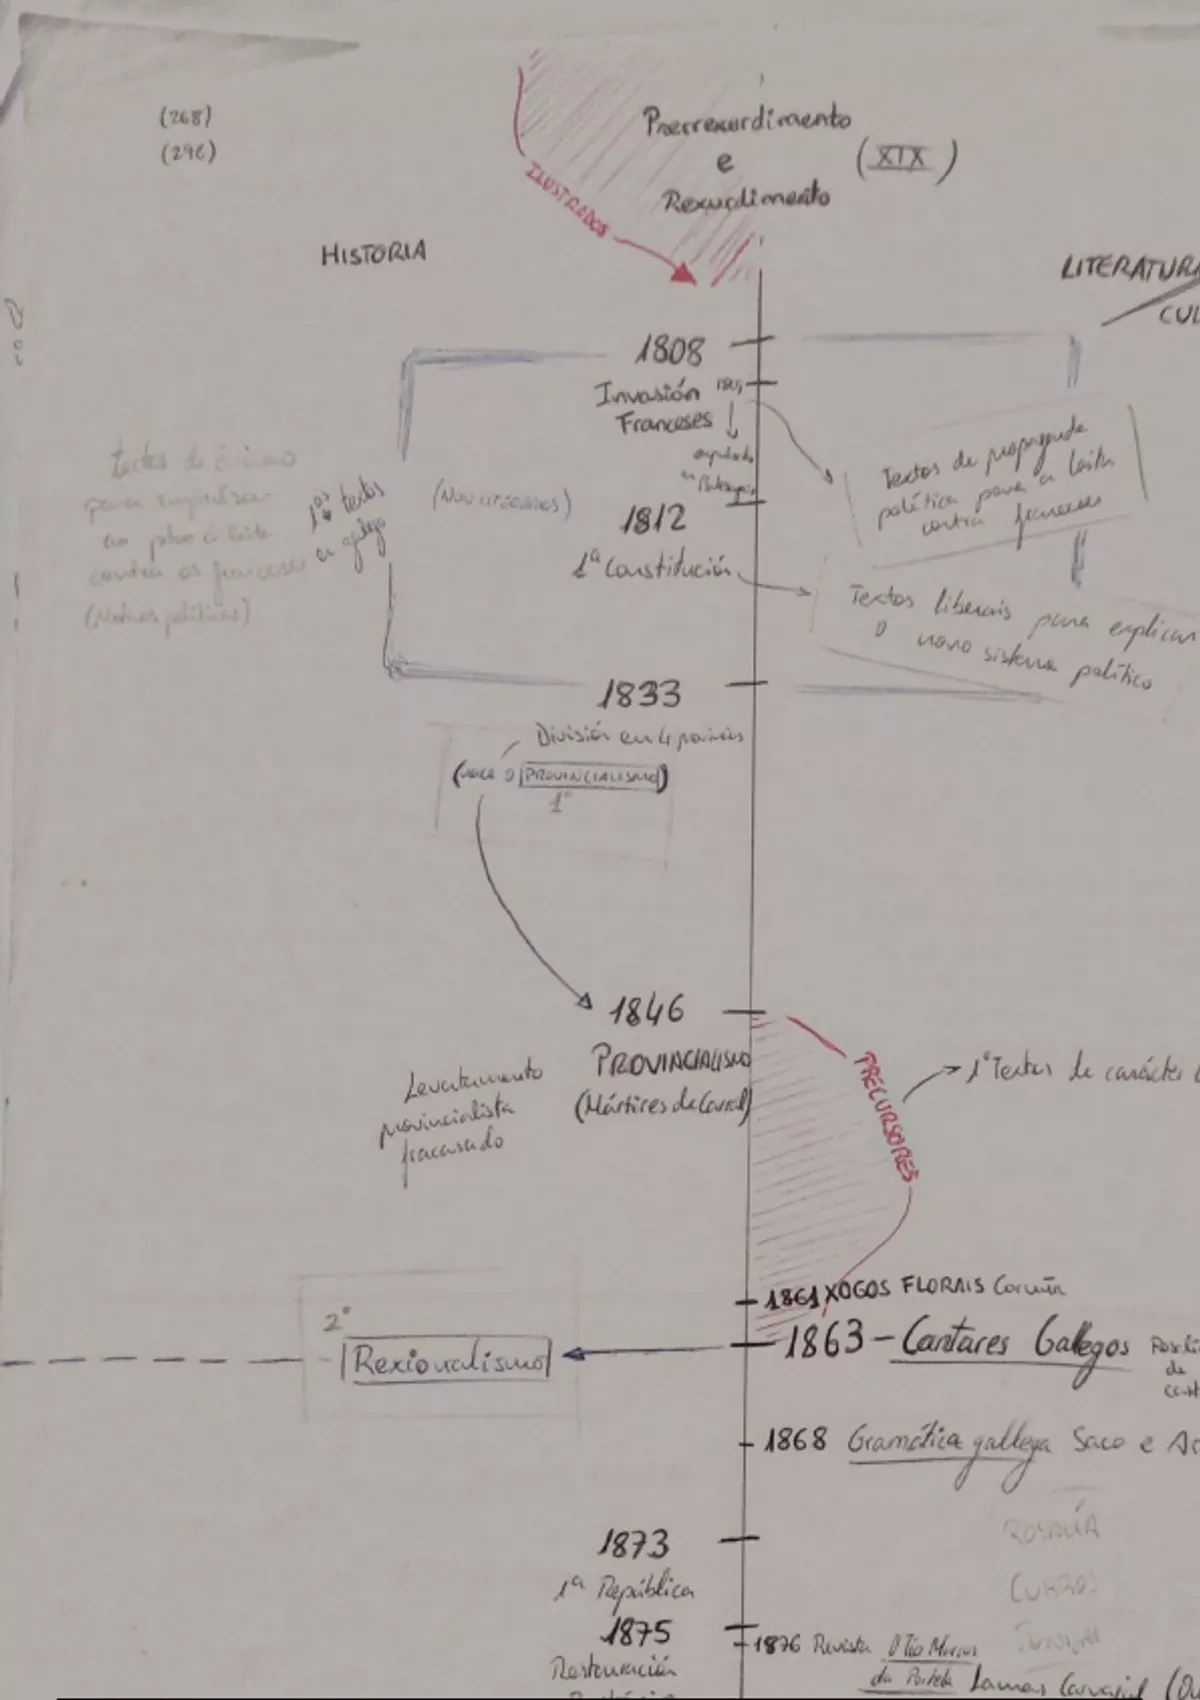 (268)
(296)
Prerrexurdimento
e
Rexurdimento
(XIX)
ILUSTRADOS
HISTORIA
LITERATURA
CUL
1808
Invasión
Franceses
Textos de propaganda
política para a loita
contra franceses
textos de
para
contra os franceses
(Motivos políticos)
1os textos
en galego
(NON LITERARIOS)
1812
1ª Constitución
Textos liberais para explicar
o novo sistema político
1833
División en 4 provincias
(nace o PROVINCIALISMO)
1º
1846
PROVINCIALISMO
(Mártires de Carral)
Levantamento
provincialista
fracasado
PRECURSORES
1º Textos de carácter
1861 XOGOS FLORAIS Coruña
2º
Rexionalismo
1863 - Cantares Gallegos
de
1868 Gramática gallega Saco e
ROSALÍA
CURROS
1873
1ª República
1875
Restauración
1876 Revista O Tío Marcos
da Portela Lamas Carvajal